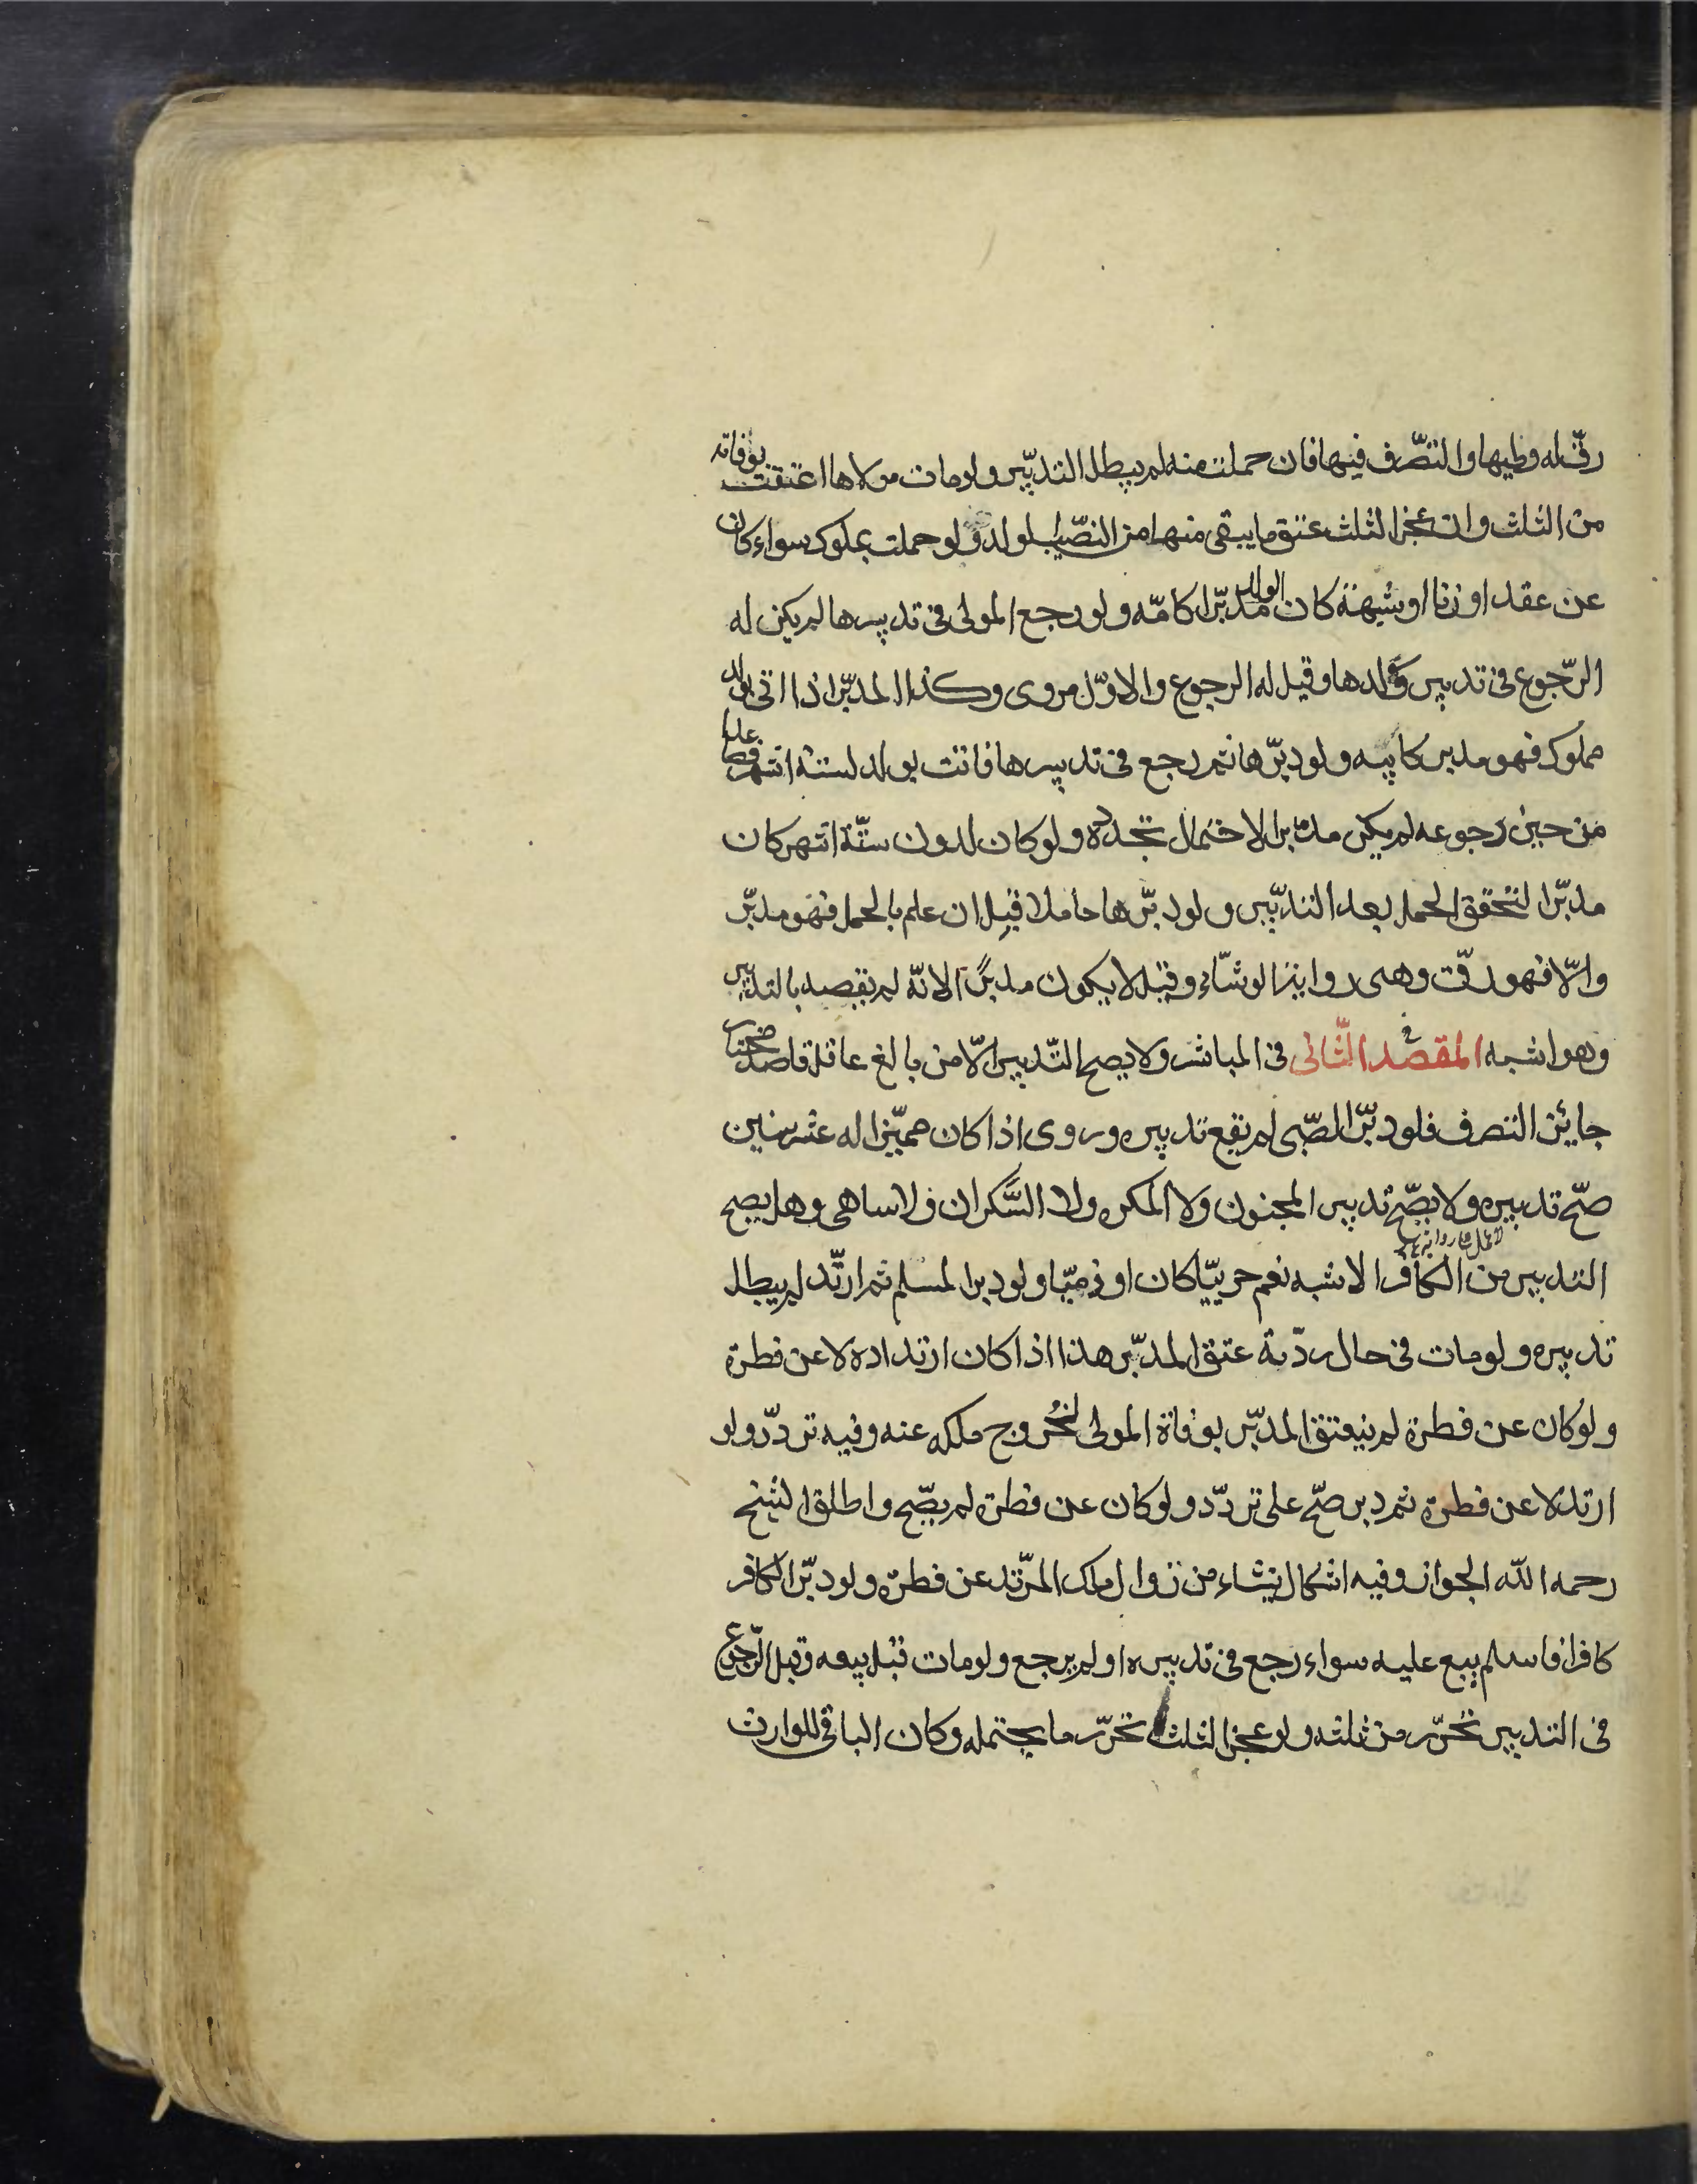 رقّ له وطيها والتصّرف فيها فان حملت منه لم يبطل التدبّير ولو مات مولاها اعتقت بوفاته
من الثلث وان عجز الثلث عتق ما يبقى منها من النصّيب لولد ولو حملت بمملوك سواء كان
عن عقد او زنا او شبهة كان الولد مدبّرا كامّه ولو رجع المولى فى تدبيرها لم يكن له
الرّجوع فى تدبير ولدها وقيل له الرجوع والاوّل مروى وكذا المدبّر اذا اتى بولد
مملوك فهو مدبر كابيه ولو دبّرها ثم رجع فى تدبيرها فاتت بولد لستة اشهر فصاعدا
من حين رجوعه لم يكن مدبرا لاحتمال تجدده ولو كان لدون ستّة اشهر كان
مدبّرا لتحقق الحمل بعد التدبّير ولو دبّرها حاملا قيل ان علم بالحمل فهو مدبّر
والّا فهو رقّ وهى رواية الوشّاء وقيل لا يكون مدبرًا لانّه لم يقصد بالتدبير
وهو اشبه المقصد الثّانى فى المباشر ولا يصح التّدبير الّا من بالغ عاقل قاصد مختار
جايئز التصرف فلو دبّر الصّبى لم يقع تدبيره وروى اذا كان مميّزا له عشر سنين
صّح تدبيره ولا يصّح تدبير المجنون ولا المكره ولا السّكران ولا ساهى وهل يصح
التدبير من الكافر الاشبه نعم حربيّا كان او ذميّا ولو دبر المسلم ثم ارتّد لم يبطل
تدبيره ولو مات فى حال ردّته عتق المدبّر هذا اذا كان ارتداده لا عن فطرة
ولو كان عن فطرة لم ينعتق المدبّر بوفاة المولى لخروج ملكه عنه وفيه تردّد ولو
ارتد لا عن فطرة ثم دبر صّح على تردّد ولو كان عن فطرة لم يصّح واطلق الشيخ
رحمه اللّه الجواز وفيه اشكال ينشاء من زوال ملك المرّتد عن فطرة ولو دبّر الكافر
كافرا فاسلم بيع عليه سواء رجع فى تدبيره او لم يرجع ولو مات قبل بيعه وقبل الرّجوع
فى التدبير تحّرر من ثلثه ولو عجز الثلث تحرّر ما يحتمله وكان الباقى للوارث